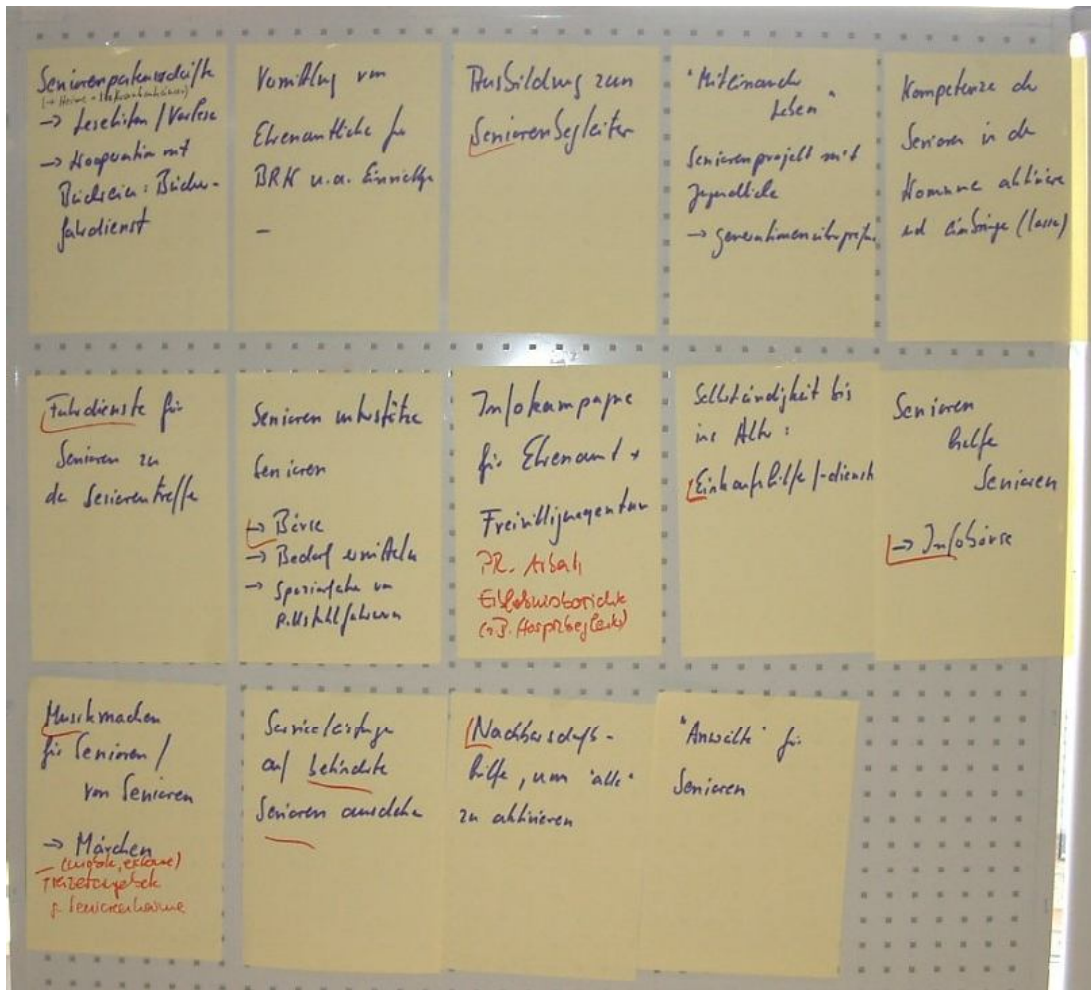 Seniorenpatenschafte
(→ Heime + Krankenhäuser)
→ Lesekisten / Vorlese
→ Kooperation mit
Bücherei: Bücher-
fahrdienst
Vermittlng von
Ehrenamtliche für
BRK u.a. Einrichtge
–
Ausbildung zum
Seniorenbegleiter
"Miteinander
Leben"
Seniorenprojekt mit
Jugendliche
→ generationenübergreifend
Kompetenze der
Senioren in der
Kommune aktiviere
und einbringe (lasse)
Fahrdienste für
Senioren zu
de Seniorentreffe
Senioren unterstütze
Senioren
→ Börse
→ Bedarf ermitteln
→ Spaziergehe von
Rollstuhlfahrern
Infokampagne
für Ehrenamt +
Freiwilligenagentur
PR. Arbeit
Erlebnisberichte
(z.B. Hospizbegleit)
Selbständigkeit bis
ins Alter:
Einkaufshilfe/-dienste
Senioren
helfe
Senioren
→ Infobörse
Musikmachen
für Senioren /
von Senioren
→ Märchen
Freizeitangebote
f. Seniorenheime
Serviceleistunge
auf behinderte
Senioren ausdehne
Nachbarschafts-
hilfe, um "alle"
zu aktivieren
"Anwälte" für
Senioren